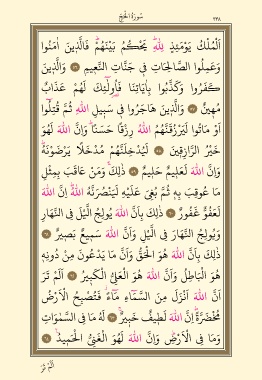 سُورَةُ الْحَجِّ ٣٣٨
اَلْمُلْكُ يَوْمَئِذٍ لِلّٰهِۜ يَحْكُمُ بَيْنَهُمْۜ فَالَّذ۪ينَ اٰمَنُوا
وَعَمِلُوا الصَّالِحَاتِ ف۪ي جَنَّاتِ النَّع۪يمِ ﴿٥٦﴾ وَالَّذ۪ينَ
كَفَرُوا وَكَذَّبُوا بِاٰيَاتِنَا فَاُو۬لٰٓئِكَ لَهُمْ عَذَابٌ
مُه۪ينٌ۟ ﴿٥٧﴾ وَالَّذ۪ينَ هَاجَرُوا ف۪ي سَب۪يلِ اللّٰهِ ثُمَّ قُتِلُٓوا
اَوْ مَاتُوا لَيَرْزُقَنَّهُمُ اللّٰهُ رِزْقًا حَسَنًاۜ وَاِنَّ اللّٰهَ لَهُوَ
خَيْرُ الرَّازِق۪ينَ ﴿٥٨﴾ لَيُدْخِلَنَّهُمْ مُدْخَلًا يَرْضَوْنَهُۜ
وَاِنَّ اللّٰهَ لَعَل۪يمٌ حَل۪يمٌ ﴿٥٩﴾ ذٰلِكَۚ وَمَنْ عَاقَبَ بِمِثْلِ
مَا عُوقِبَ بِه۪ ثُمَّ بُغِيَ عَلَيْهِ لَيَنْصُرَنَّهُ اللّٰهُۜ اِنَّ اللّٰهَ
لَعَفُوٌّ غَفُورٌ ﴿٦٠﴾ ذٰلِكَ بِاَنَّ اللّٰهَ يُولِجُ الَّيْلَ فِي النَّهَارِ
وَيُولِجُ النَّهَارَ فِي الَّيْلِ وَاَنَّ اللّٰهَ سَم۪يعٌ بَص۪يرٌ ﴿٦١﴾
ذٰلِكَ بِاَنَّ اللّٰهَ هُوَ الْحَقُّ وَاَنَّ مَا يَدْعُونَ مِنْ دُونِه۪
هُوَ الْبَاطِلُ وَاَنَّ اللّٰهَ هُوَ الْعَلِيُّ الْكَب۪يرُ ﴿٦٢﴾ اَلَمْ تَرَ
اَنَّ اللّٰهَ اَنْزَلَ مِنَ السَّمَٓاءِ مَٓاءًۘ فَتُصْبِحُ الْاَرْضُ
مُخْضَرَّةًۜ اِنَّ اللّٰهَ لَط۪يفٌ خَب۪يرٌ ﴿٦٣﴾ لَهُ مَا فِي السَّمٰوَاتِ
وَمَا فِي الْاَرْضِۜ وَاِنَّ اللّٰهَ لَهُوَ الْغَنِيُّ الْحَم۪يدُ۟ ﴿٦٤﴾
اَلَمْ تَرَ